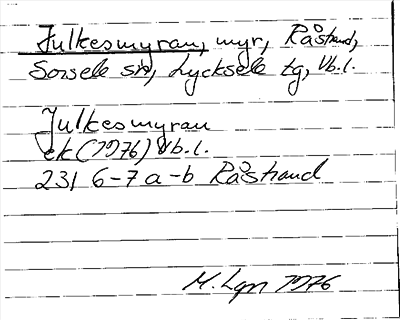 Julkesmyran, myr, Råstrand,
Sorsele sn, Lycksele tg, Vb.l.
Julkesmyran
ek (1976) Vb.l.
231 6-7 a-b Råstrand
M. Lgn 1976